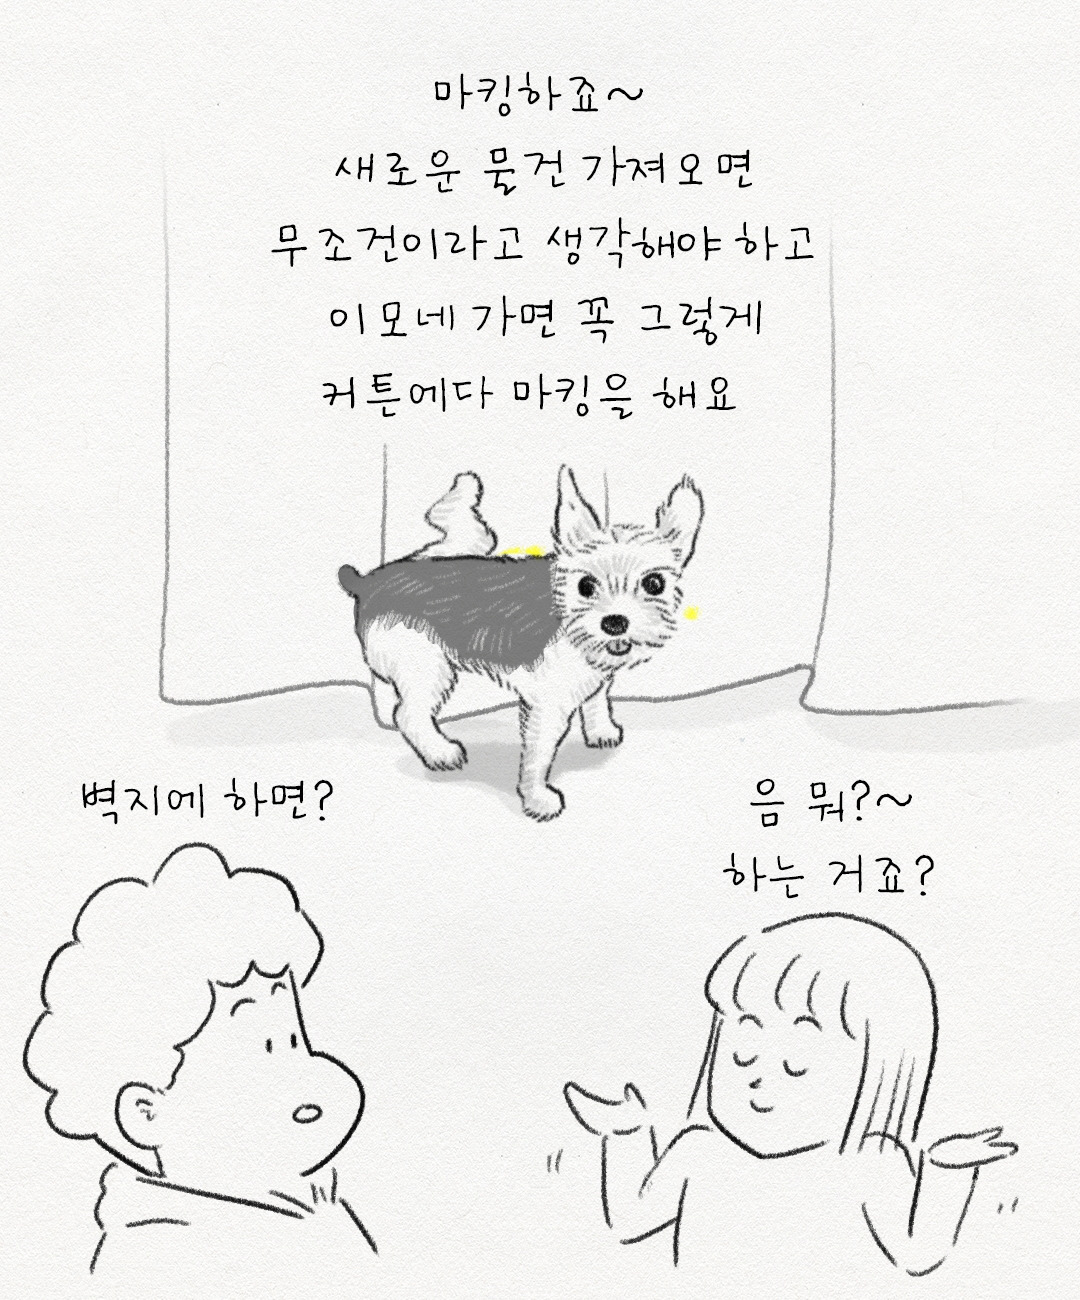 마킹하죠~
새로운 물건 가져오면
무조건이라고 생각해야 하고
이모네 가면 꼭 그렇게
커튼에다 마킹을 해요
벽지에 하면?
음 뭐?~
하는 거죠?